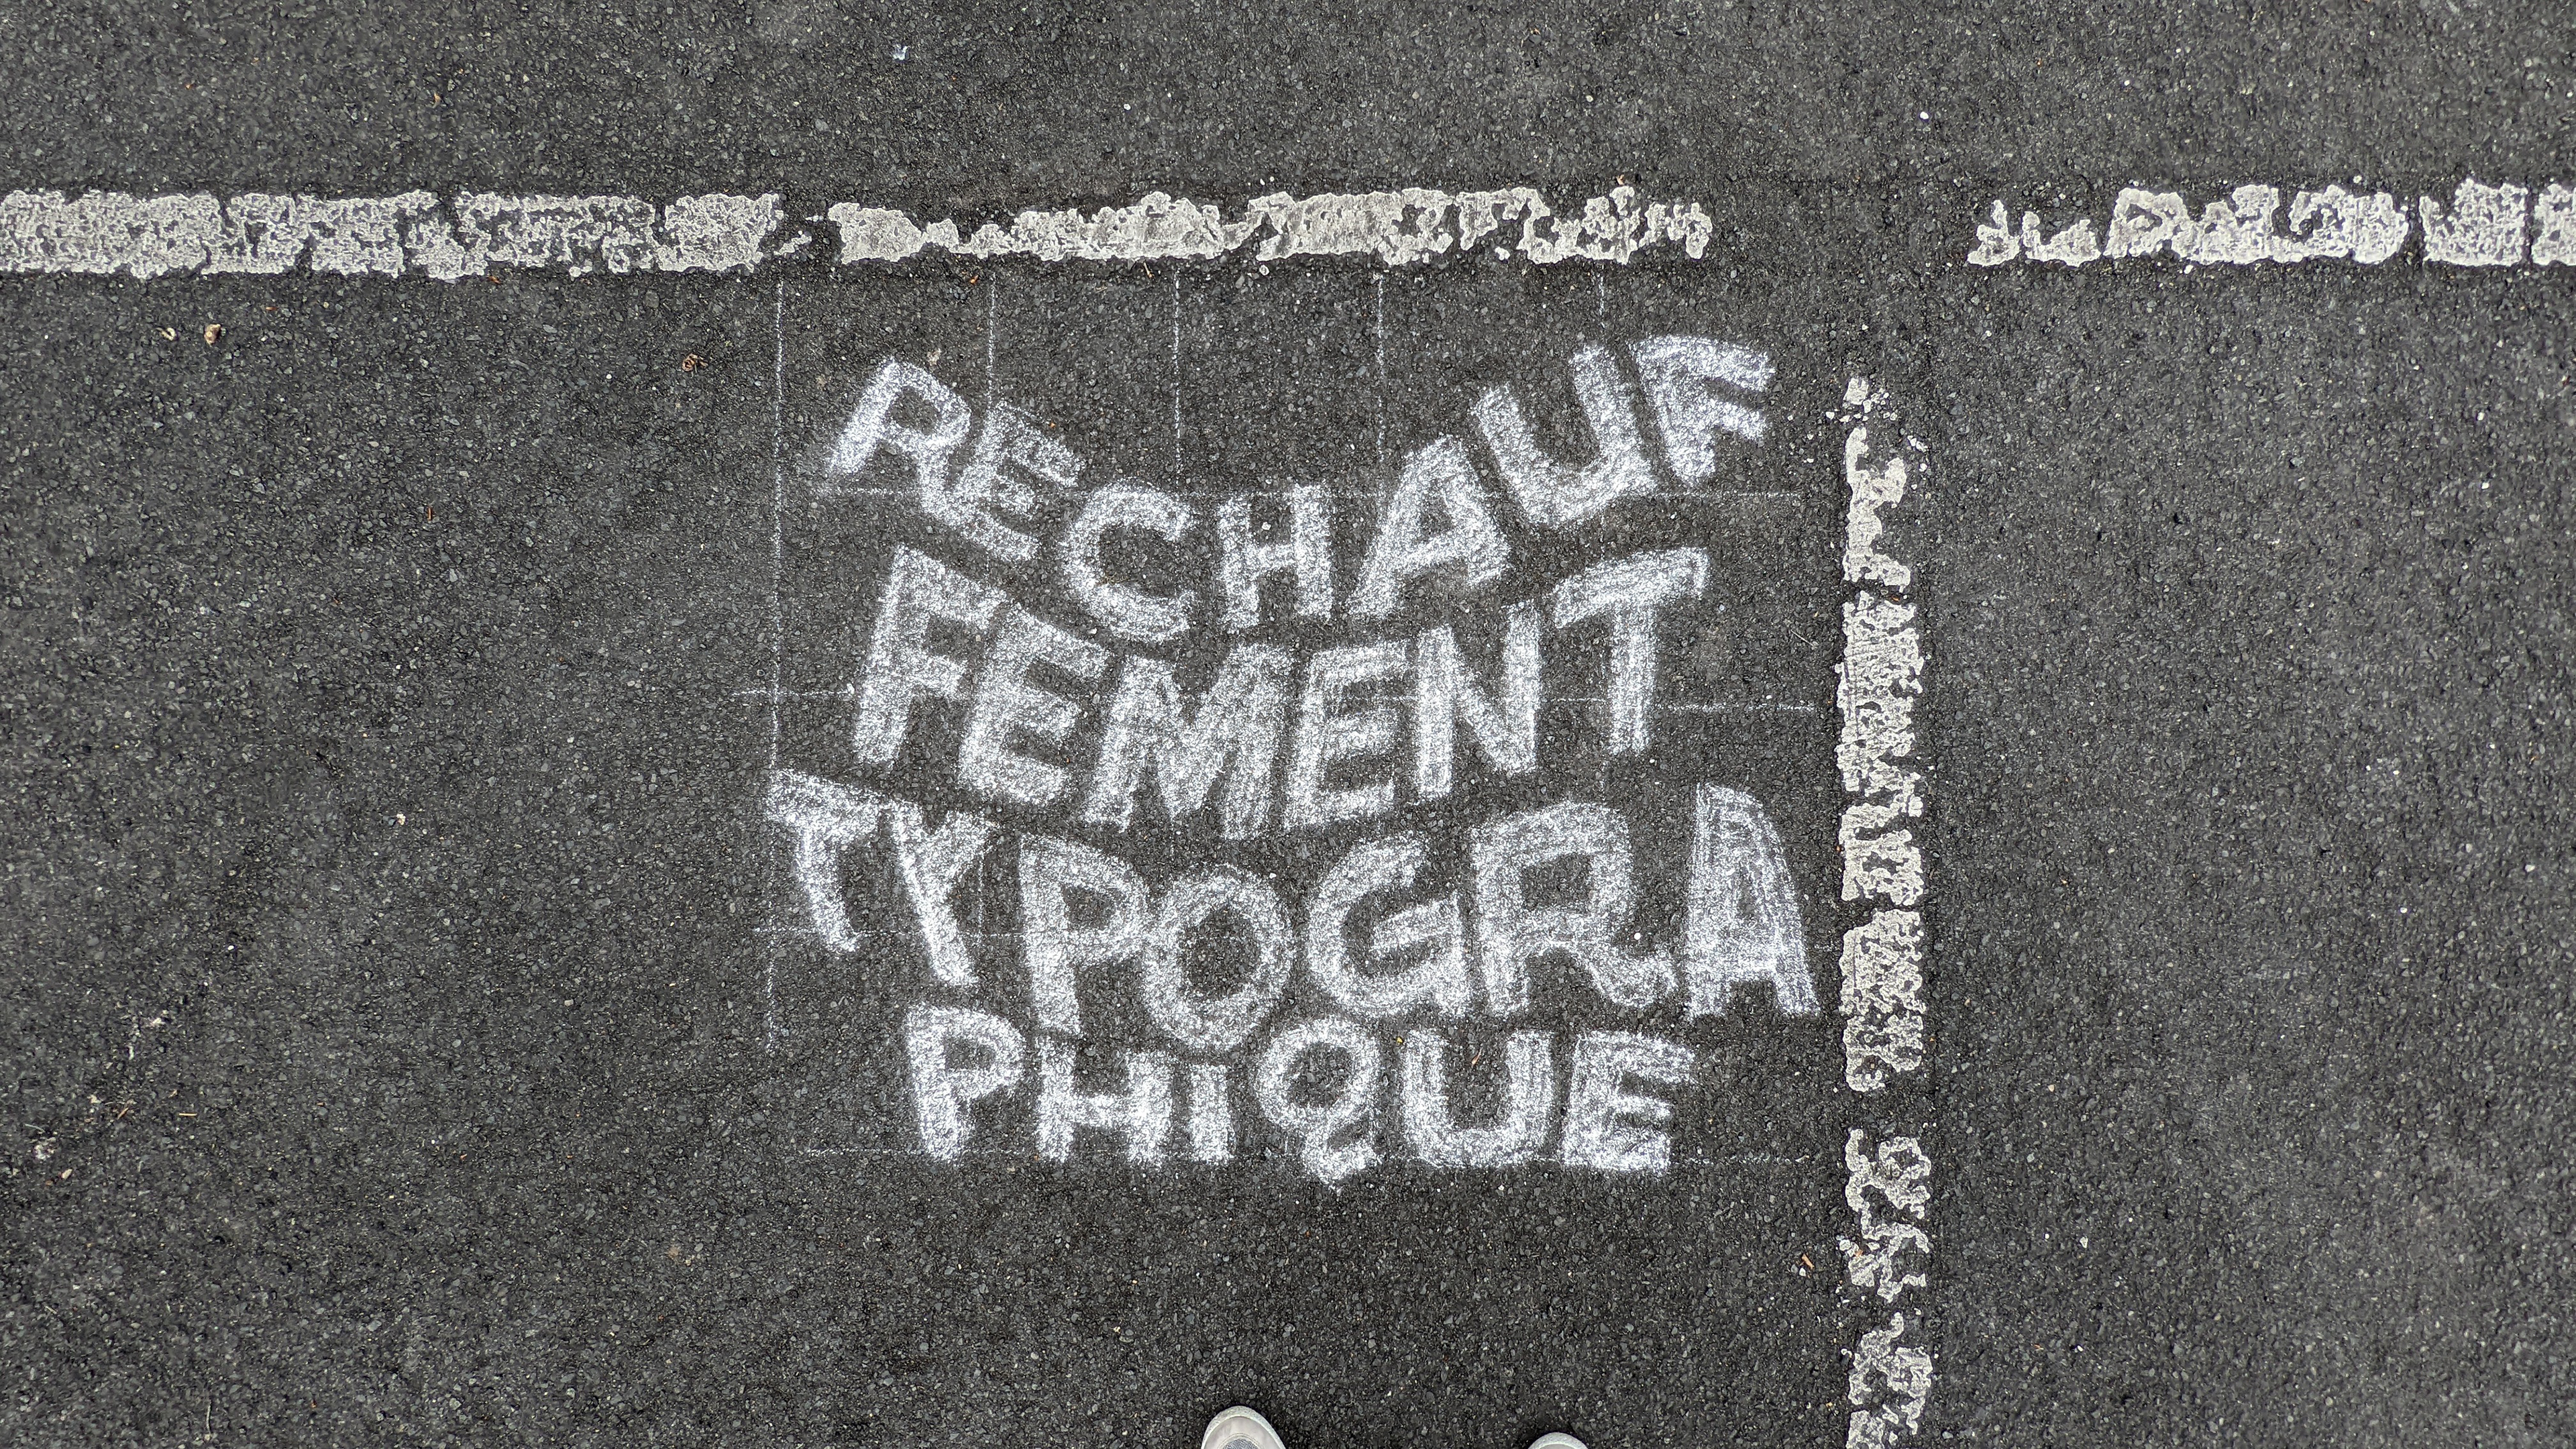 RECHAUF
FEMENT
TYPOGRA
PHiQUE